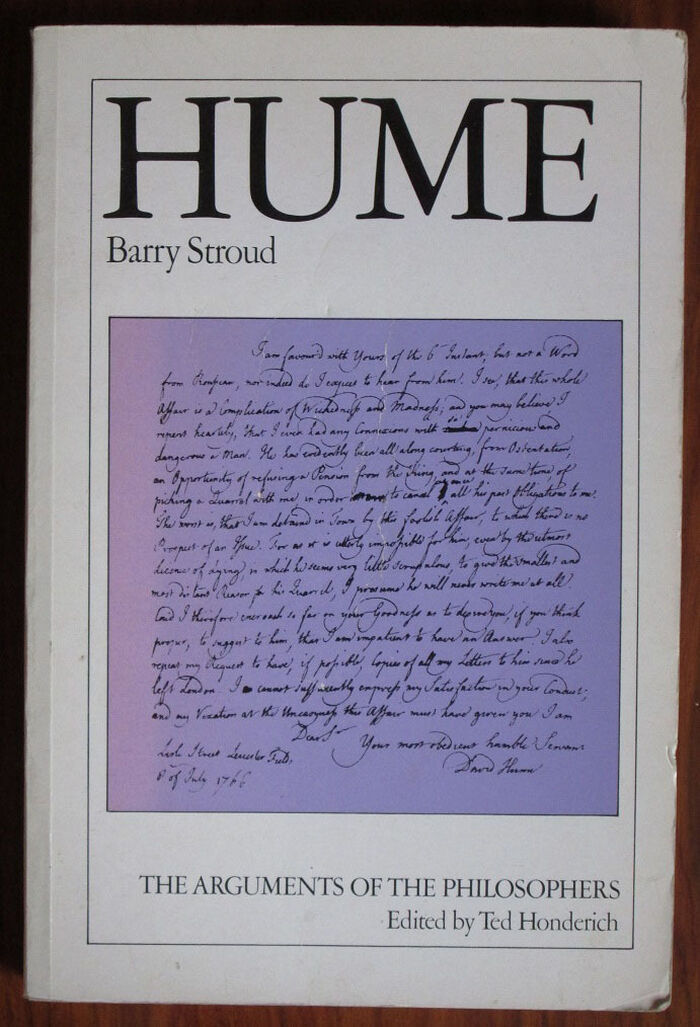 HUME
Barry Stroud
I am favour'd with Yours of the 6 Instant, but not a Word
from Rousseau, nor indeed do I expect to hear from him. I see, that this whole
Affair is a Complication of Wickedness and Madness; and you may believe I
repent heartily, that I ever had any Connexions with so pernicious and
dangerous a Man. He has evidently been all along courting, from Ostentation,
an Opportunity of refusing a Pension from the King, and at the same time, of
picking a Quarrel with me in order to cancel all his past Obligations to me.
The worst is, that I am detained in Town by this foolish Affair, to which there is no
Prospect of an Issue. For as it is utterly impossible for him, even by the utmost
Licence of Lying, in which he seems very little scrupulous, to give the smallest and
most distant Reason for his Quarrel, I presume he will never write me at all.
Coud I therefore encroach so far on your Goodness as to desire you, if you think
proper, to suggest to him, that I am impatient to have an Answer. I also
repeat my Request to have, if possible, Copies of all my Letters to him since he
left London. I cannot sufficiently express my Satisfaction in your Conduct;
and my Vexation at the Uneasyness this Affair must have given you I am
Dear Sr
Your most obedient humble Servant
Lisle Street Leicester Fields,
8 of July 1766
David Hume
THE ARGUMENTS OF THE PHILOSOPHERS
Edited by Ted Honderich